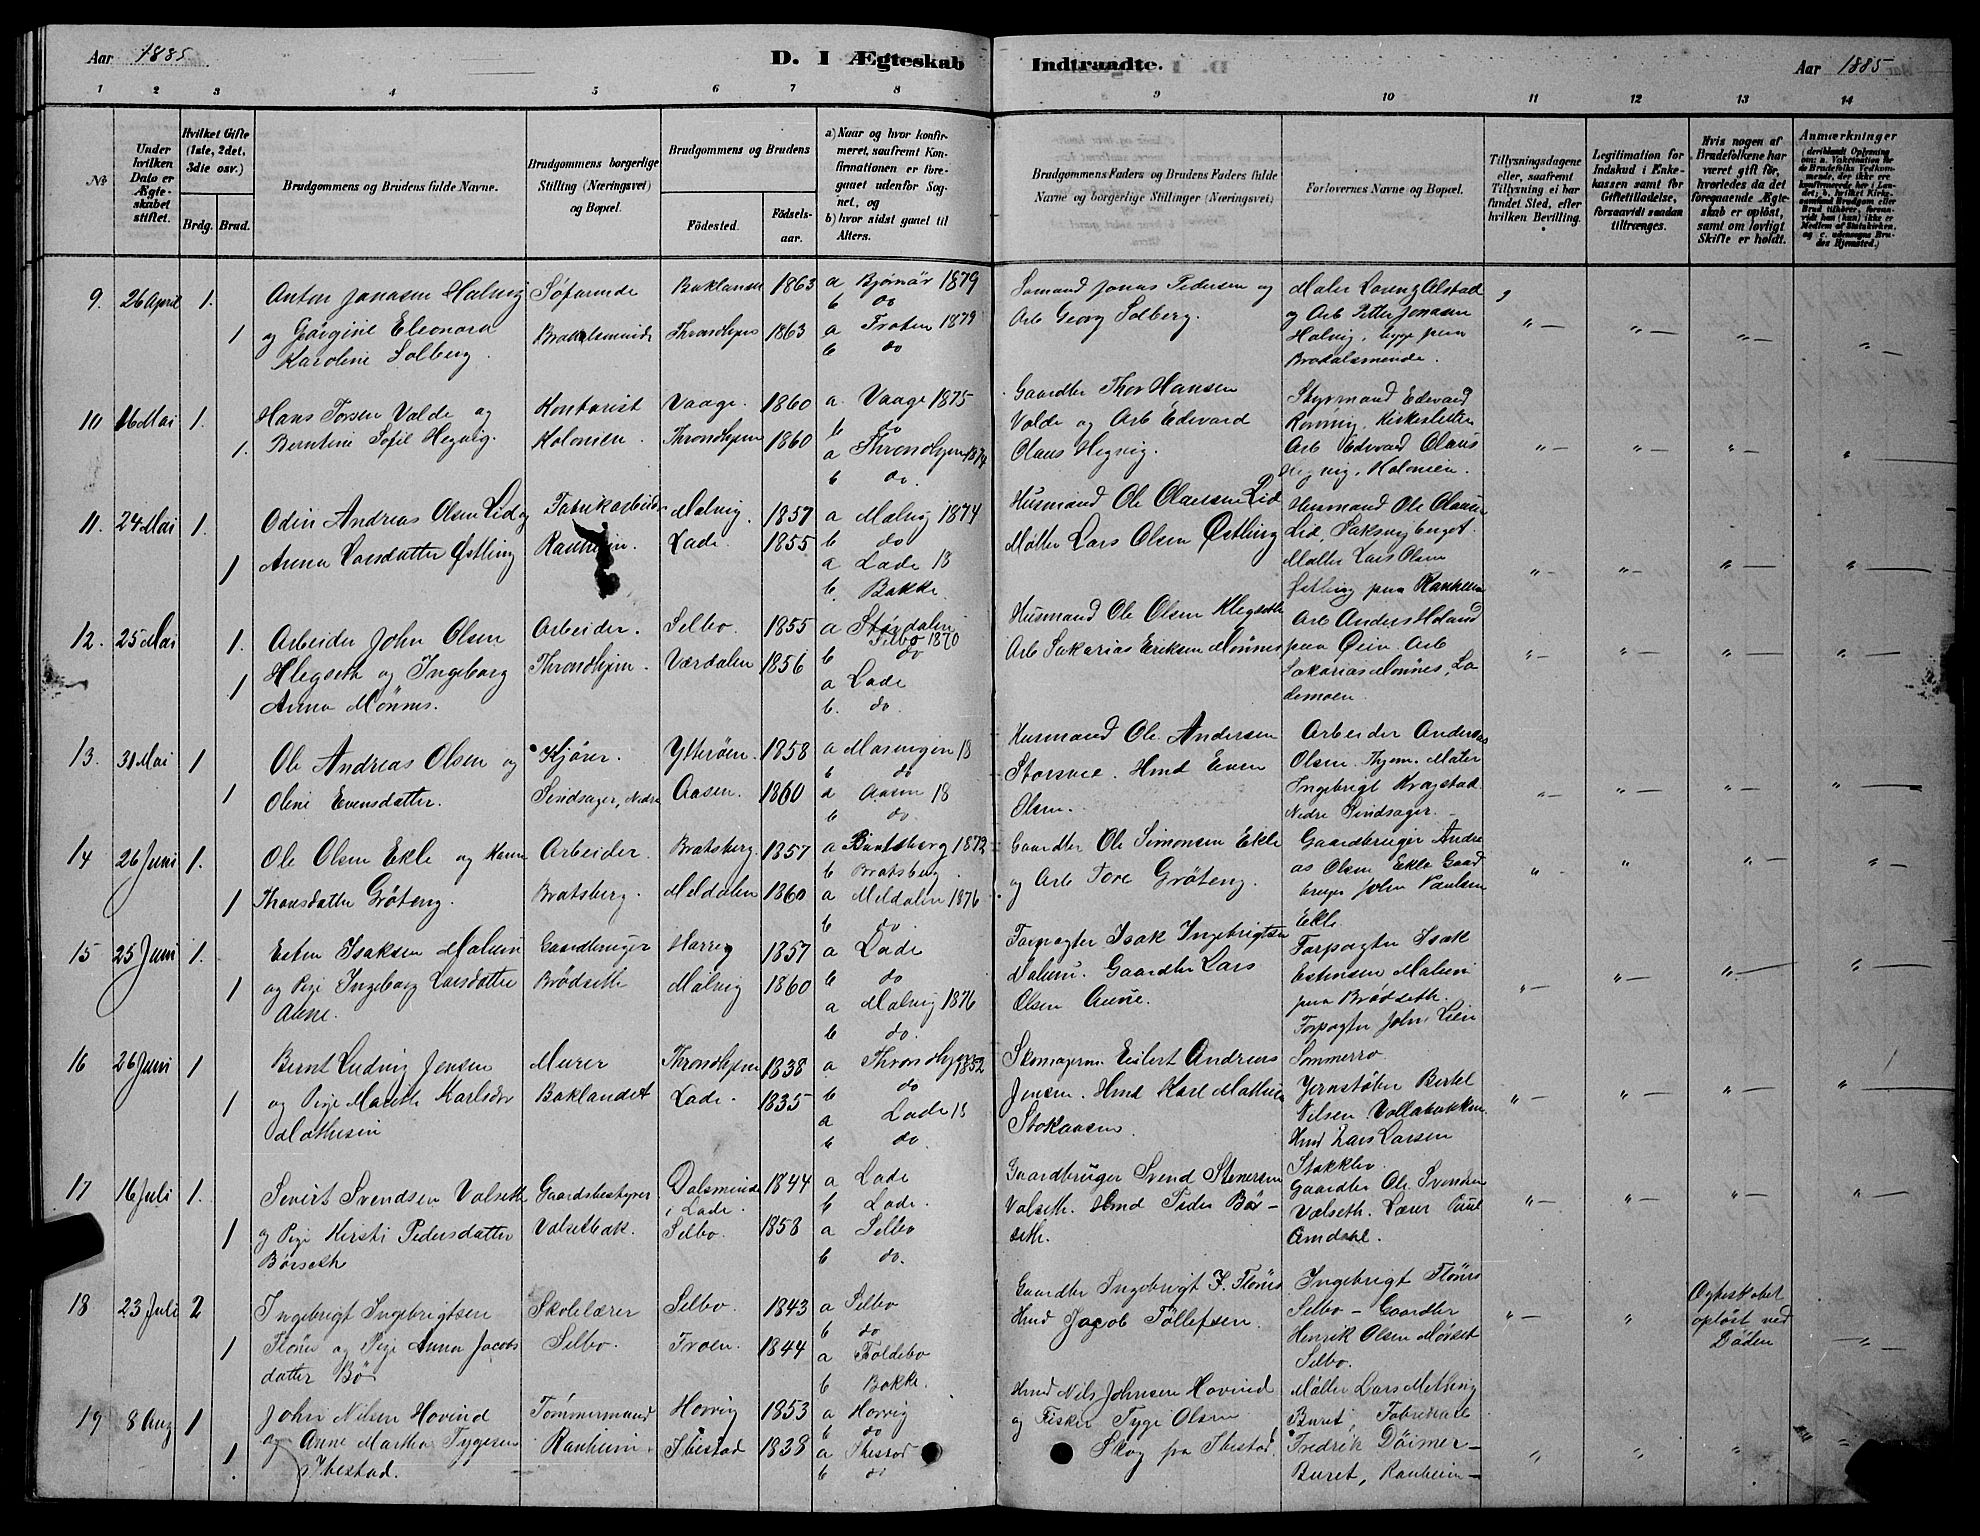 Aar 1885
D. I Ægteskab
Indtraadte.
Aar 1885
1 2 3 4 5 6 7 8 9 10 11 12 13 14
№
Under hvilken Dato er Ægteskabet stiftet.
Hvilket Gifte (1ste, 2det, 3die osv.)
Brdg. Brud.
Brudgommens og Brudens fulde Navne.
Brudgommens borgerlige Stilling (Næringsvei) og Bopæl.
Brudgommens og Brudens
Födested.
Födselsaar.
a) Naar og hvor konfirmeret, saafremt Konfirmationen er foregaaet udenfor Sognet, og
b) hvor sidst ganet til Alters.
Brudgommens Faders og Brudens Faders fulde Navne og borgerlige Stillinger (Næringsvei)
Forlovernes Navne og Bopæl.
Tillysningsdagene eller, saafremt Tillysning ei har fundet Sted, efter hvilken Bevilling.
Legitimation for Indskud i Enkekassen samt for Giftetilladelse, forsaavidt saadan tiltrænges.
Hvis nogen af Brudefolkene har været gift för, hvorledes da det foregaaende Ægteskab er oplöst, samt om lovligt Skifte er holdt.
Anmærkninger
9. 26 April 1. Anton Jonasen Halvig Söfarende Baklandet 1863 a Bjørnör 1879
b do
1 og Georgine Eleonora Karoline Solberg. Brodalsminde Throndhjem 1863 a Frosten 1879
b do
Sømand Jonas Pedersen og Arb Georg Solberg.
Maler Lorenz Alstad og Arb Petter Jonasen Halvig, begge paa Brodalsminde.
10 16 Mai 1. Hans Torsen Valde og Kontorist Vaage. 1860 a Vaage 1875
b do
1. Berntine Sofie Hegvig. Kolonien. Throndhjem 1860 a Throndhjem 1874
b do.
Gaardbr Thor Hansen Valde og Arb Edvard Olaus Hegvig.
Styrmand Edvard Rönning, Kirkesletten Arb Edvard Olaus Hegvig, Kolonien.
11. 24 Mai 1. Odin Andreas Olsen Lid og Fabrikarbeider Malvig. 1857 a Malvig 1874
b do
1 Anna Larsdatter Østling Ranheim. Lade. 1855 a Lade 18
b. Bakke.
Husmand Ole Olausen Lid Møller Lars Olsen Østling
Husmand Ole Olausen Lid, Saksvig berget. Møller Lars Olsen Østling paa Ranheim
12. 25 Mai 1. Arbeider John Olsen Arbeider. Selbo. 1855 a Størdalen Selbo 1870
b do
1 Hegseth og Ingeborg Anna Mönnes. Throndhjem. Værdalen 1856 a Lade
b. do.
Husmand Ole Olsen Hegseth Arb Sakarias Eriksen Mönnes
Arb Anders Moland paa Øien. Arb Sakarias Mönnes, Lademoen.
13. 31 Mai 1 Ole Andreas Olsen og Kjörer. Ytteröen. 1858 a Mosvigen 18
b do
1 Oline Evensdatter. Sindsager, Nedre Aasen. 1860 a Aasen 18
b do.
Husmand Ole Andersen Storsvee. Hmd Even Olsen.
Arbeider Andreas Olsen. Thjem. Maler Ingebrigt Kragstad. Nedre Sindsager.
14 26 Juni 1. Ole Olsen Ekle og Karen Arbeider. Bratsberg. 1857 a Bratsberg 1872
b Bratsberg.
1 Thoresdatter Gröteng. Bratsberg. Meldalen 1860 a Meldalen 1876
b do.
Gaardbr Ole Simonsen Ekle og Arb Tore Gröteng.
Gaardbruger Andreas Olsen Ekle Gaardbruger John Paulsen Ekle
15 25 Juni 1. Esten Isaksen Malum Gaardbruger Horrig 1857 a Lade
b do
1 og Pige Ingeborg Larsdatter Aune. Brödseth Malvig 1860 a Malvig 1876
b do.
Forpagter Isak Ingebrigtsen Malum. Gaardbr Lars Olsen Aune.
Forpagter Isak Estensen Malum paa Brödseth. Forpagter John Lien Sommerro
16 26 Juni 1 Bernt Ludvig Jensen Murer Throndhjem 1838 a Throndhjem 1852
b do
1 og Pige Mareth Karlsdr Mathisen Baklandet Lade. 1835 a Lade 18
b do.
Skomagerm. Eilert Andreas Jensen. Hmd Karl Mathisen Stokaasen.
Jernstöber Bertel Nilsen Vollabakken. Hmd Lars Larsen Stokkbo
17 16 Juli 1. Sivert Svendsen Valseth Gaardsbestyrer Dalsminde i Lade. 1844 a Lade
b Lade.
1 og Pige Kirsti Pedersdatter Börseth Valsetbak. Selbo. 1858 a Selbo
b do.
Gaardbruger Svend Stenersen Valseth. Hmd Peder Börseth.
Gaardbr Ole Svendsen Valseth. Lærer Paul Amdahl.
18 23 Juli 2 Ingebrigt Ingebrigtsen Skolelærer Selbo. 1843 a Selbo
b do
1 Flönes og Pige Anna Jacobsdatter Bö Selbo. Froen. 1844 a Foldebo
b Bakke.
Gaardbr Ingebrigt J. Flönes Hmd Jacob Tollefsen.
Ingebrigt Flönes Selbo - Gaardbr Henrik Olsen Morset Selbo.
Ægteskabet oplöst ved Döden
19 8 Aug 1 John Nilsen Hovind Tömmermand Horrig 1853 a Horrig
b do
1. og Anne Martha Tygesen Ibestad. Ranheim. Ibestad 1838 a Ibestad
b do
Hmd Nils Johnsen Hovind og Fisker Tyge Olsen Skog fra Ibestad
Møller Lars Mething Buret, Fabrikarb Fredrik Döimer - Buret, Ranheim -